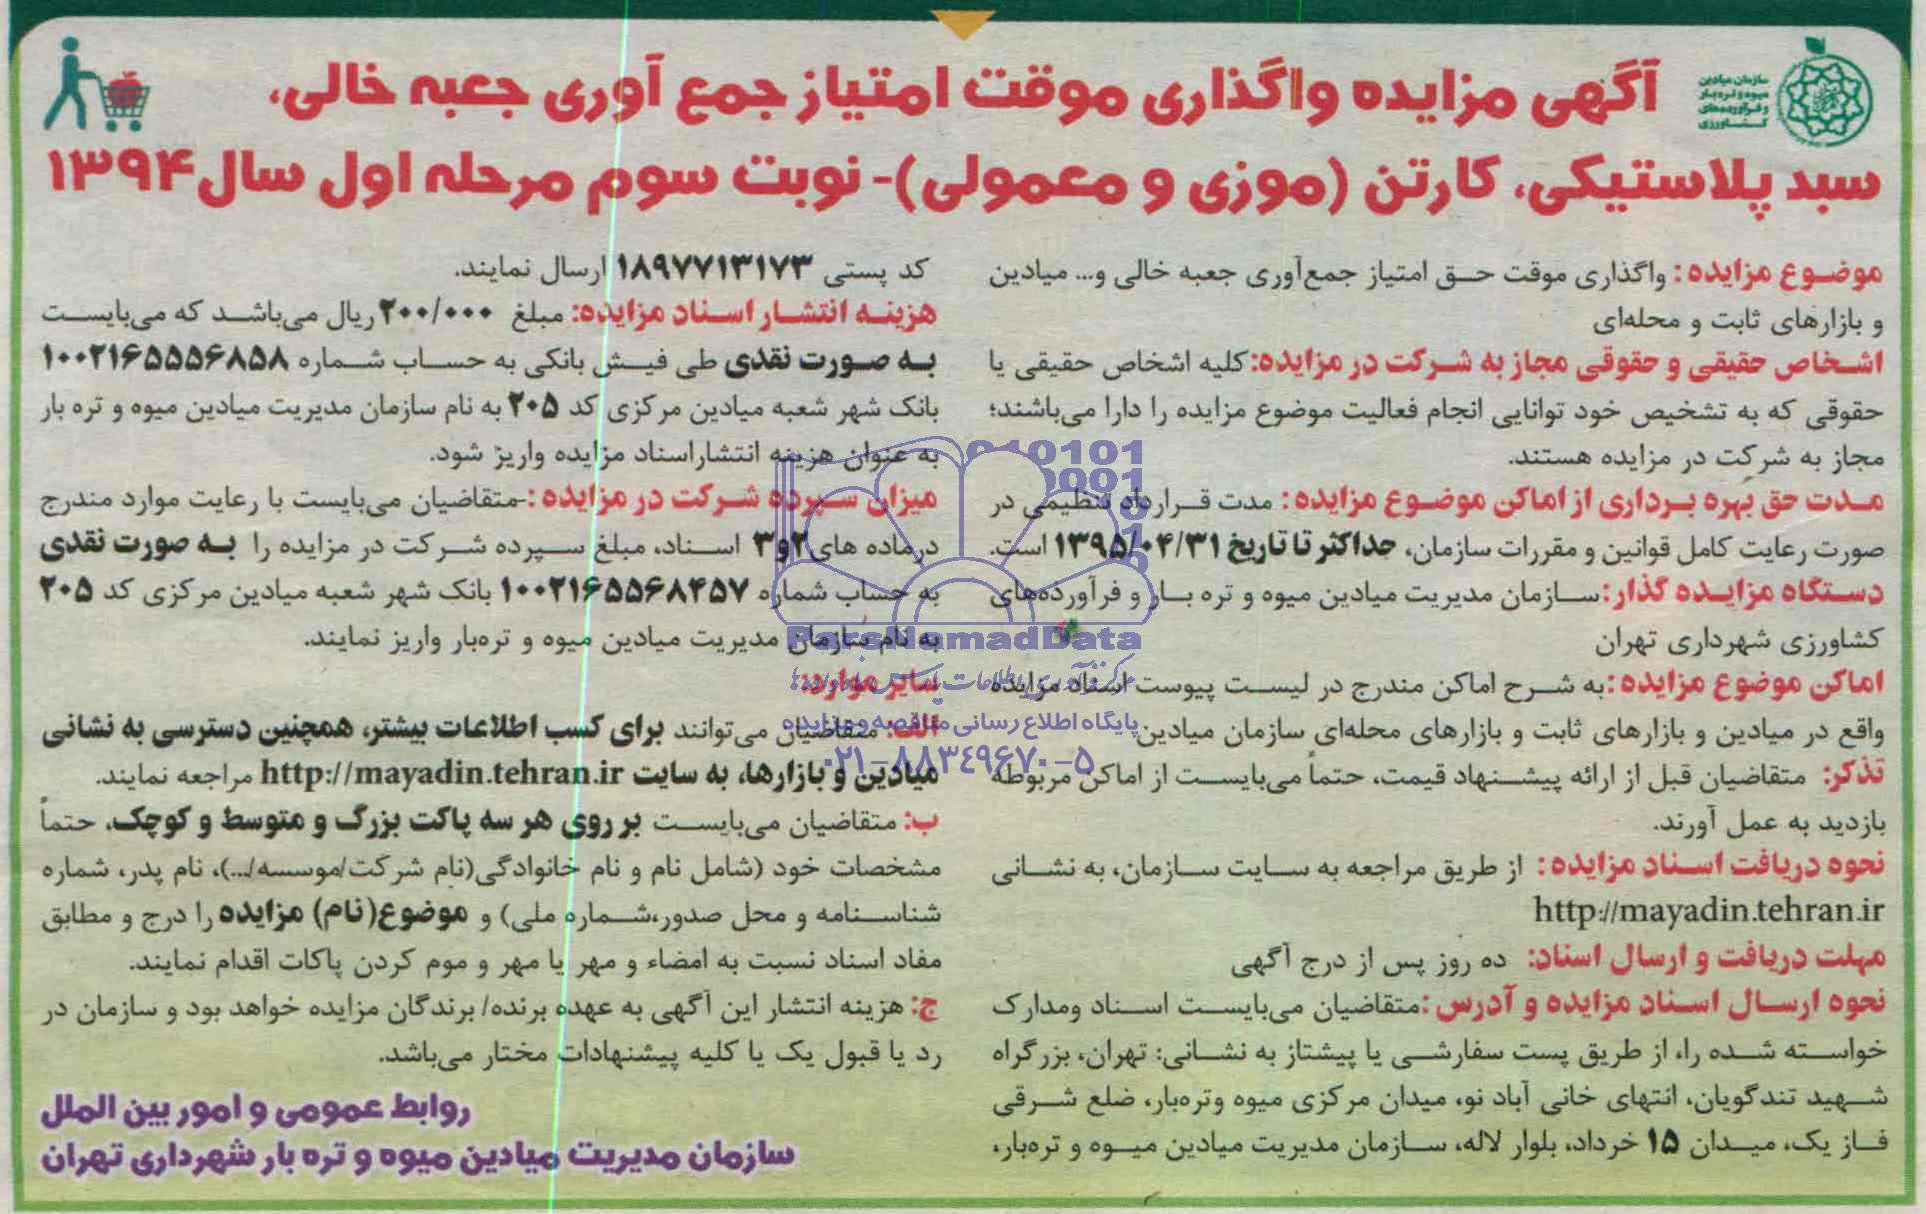 سازمان میادین
میوه و تره بار
و فرآورده‌های
کشاورزی
آگهی مزایده واگذاری موقت امتیاز جمع آوری جعبه خالی،
سبد پلاستیکی، کارتن (موزی و معمولی)- نوبت سوم مرحله اول سال ۱۳۹۴
موضوع مزایده: واگذاری موقت حق امتیاز جمع‌آوری جعبه خالی و... میادین
و بازارهای ثابت و محله‌ای
اشخاص حقیقی و حقوقی مجاز به شرکت در مزایده: کلیه اشخاص حقیقی یا
حقوقی که به تشخیص خود توانایی انجام فعالیت موضوع مزایده را دارا می‌باشند؛
مجاز به شرکت در مزایده هستند.
مدت حق بهره برداری از اماکن موضوع مزایده: مدت قرارداد تنظیمی در
صورت رعایت کامل قوانین و مقررات سازمان، حداکثر تا تاریخ ۱۳۹۵/۰۴/۳۱ است.
دستگاه مزایده گذار: سازمان مدیریت میادین میوه و تره بار و فرآورده‌های
کشاورزی شهرداری تهران
اماکن موضوع مزایده: به شرح اماکن مندرج در لیست پیوست اسناد مزایده
واقع در میادین و بازارهای ثابت و بازارهای محله‌ای سازمان میادین
تذکر: متقاضیان قبل از ارائه پیشنهاد قیمت، حتماً می‌بایست از اماکن مربوطه
بازدید به عمل آورند.
نحوه دریافت اسناد مزایده: از طریق مراجعه به سایت سازمان، به نشانی
http://mayadin.tehran.ir
مهلت دریافت و ارسال اسناد: ده روز پس از درج آگهی
نحوه ارسال اسناد مزایده و آدرس: متقاضیان می‌بایست اسناد ومدارک
خواسته شده را، از طریق پست سفارشی یا پیشتاز به نشانی: تهران، بزرگراه
شهید تندگویان، انتهای خانی آباد نو، میدان مرکزی میوه وتره‌بار، ضلع شرقی
فاز یک، میدان ۱۵ خرداد، بلوار لاله، سازمان مدیریت میادین میوه و تره‌بار،
کد پستی ۱۸۹۷۷۱۳۱۷۳ ارسال نمایند.
هزینه انتشار اسناد مزایده: مبلغ ۲۰۰/۰۰۰ ریال می‌باشد که می‌بایست
به صورت نقدی طی فیش بانکی به حساب شماره ۱۰۰۲۱۶۵۵۵۶۸۵۸
بانک شهر شعبه میادین مرکزی کد ۲۰۵ به نام سازمان مدیریت میادین میوه و تره بار
به عنوان هزینه انتشاراسناد مزایده واریز شود.
میزان سپرده شرکت در مزایده: -متقاضیان می‌بایست با رعایت موارد مندرج
درماده های ۲و۳ اسناد، مبلغ سپرده شرکت در مزایده را به صورت نقدی
به حساب شماره ۱۰۰۲۱۶۵۵۶۸۴۵۷ بانک شهر شعبه میادین مرکزی کد ۲۰۵
به نام سازمان مدیریت میادین میوه و تره‌بار واریز نمایند.
سایر موارد:
الف: متقاضیان می‌توانند برای کسب اطلاعات بیشتر، همچنین دسترسی به نشانی
میادین و بازارها، به سایت http://mayadin.tehran.ir مراجعه نمایند.
ب: متقاضیان می‌بایست بر روی هر سه پاکت بزرگ و متوسط و کوچک، حتماً
مشخصات خود (شامل نام و نام خانوادگی(نام شرکت/موسسه/...)، نام پدر، شماره
شناسنامه و محل صدور،شماره ملی) و موضوع(نام) مزایده را درج و مطابق
مفاد اسناد نسبت به امضاء و مهر یا مهر و موم کردن پاکات اقدام نمایند.
ج: هزینه انتشار این آگهی به عهده برنده/ برندگان مزایده خواهد بود و سازمان در
رد یا قبول یک یا کلیه پیشنهادات مختار می‌باشد.
روابط عمومی و امور بین الملل
سازمان مدیریت میادین میوه و تره بار شهرداری تهران
ParsNamadData
پایگاه اطلاع رسانی مناقصه و مزایده
۰۲۱-۸۸۳۴۹۶۷۰-۵